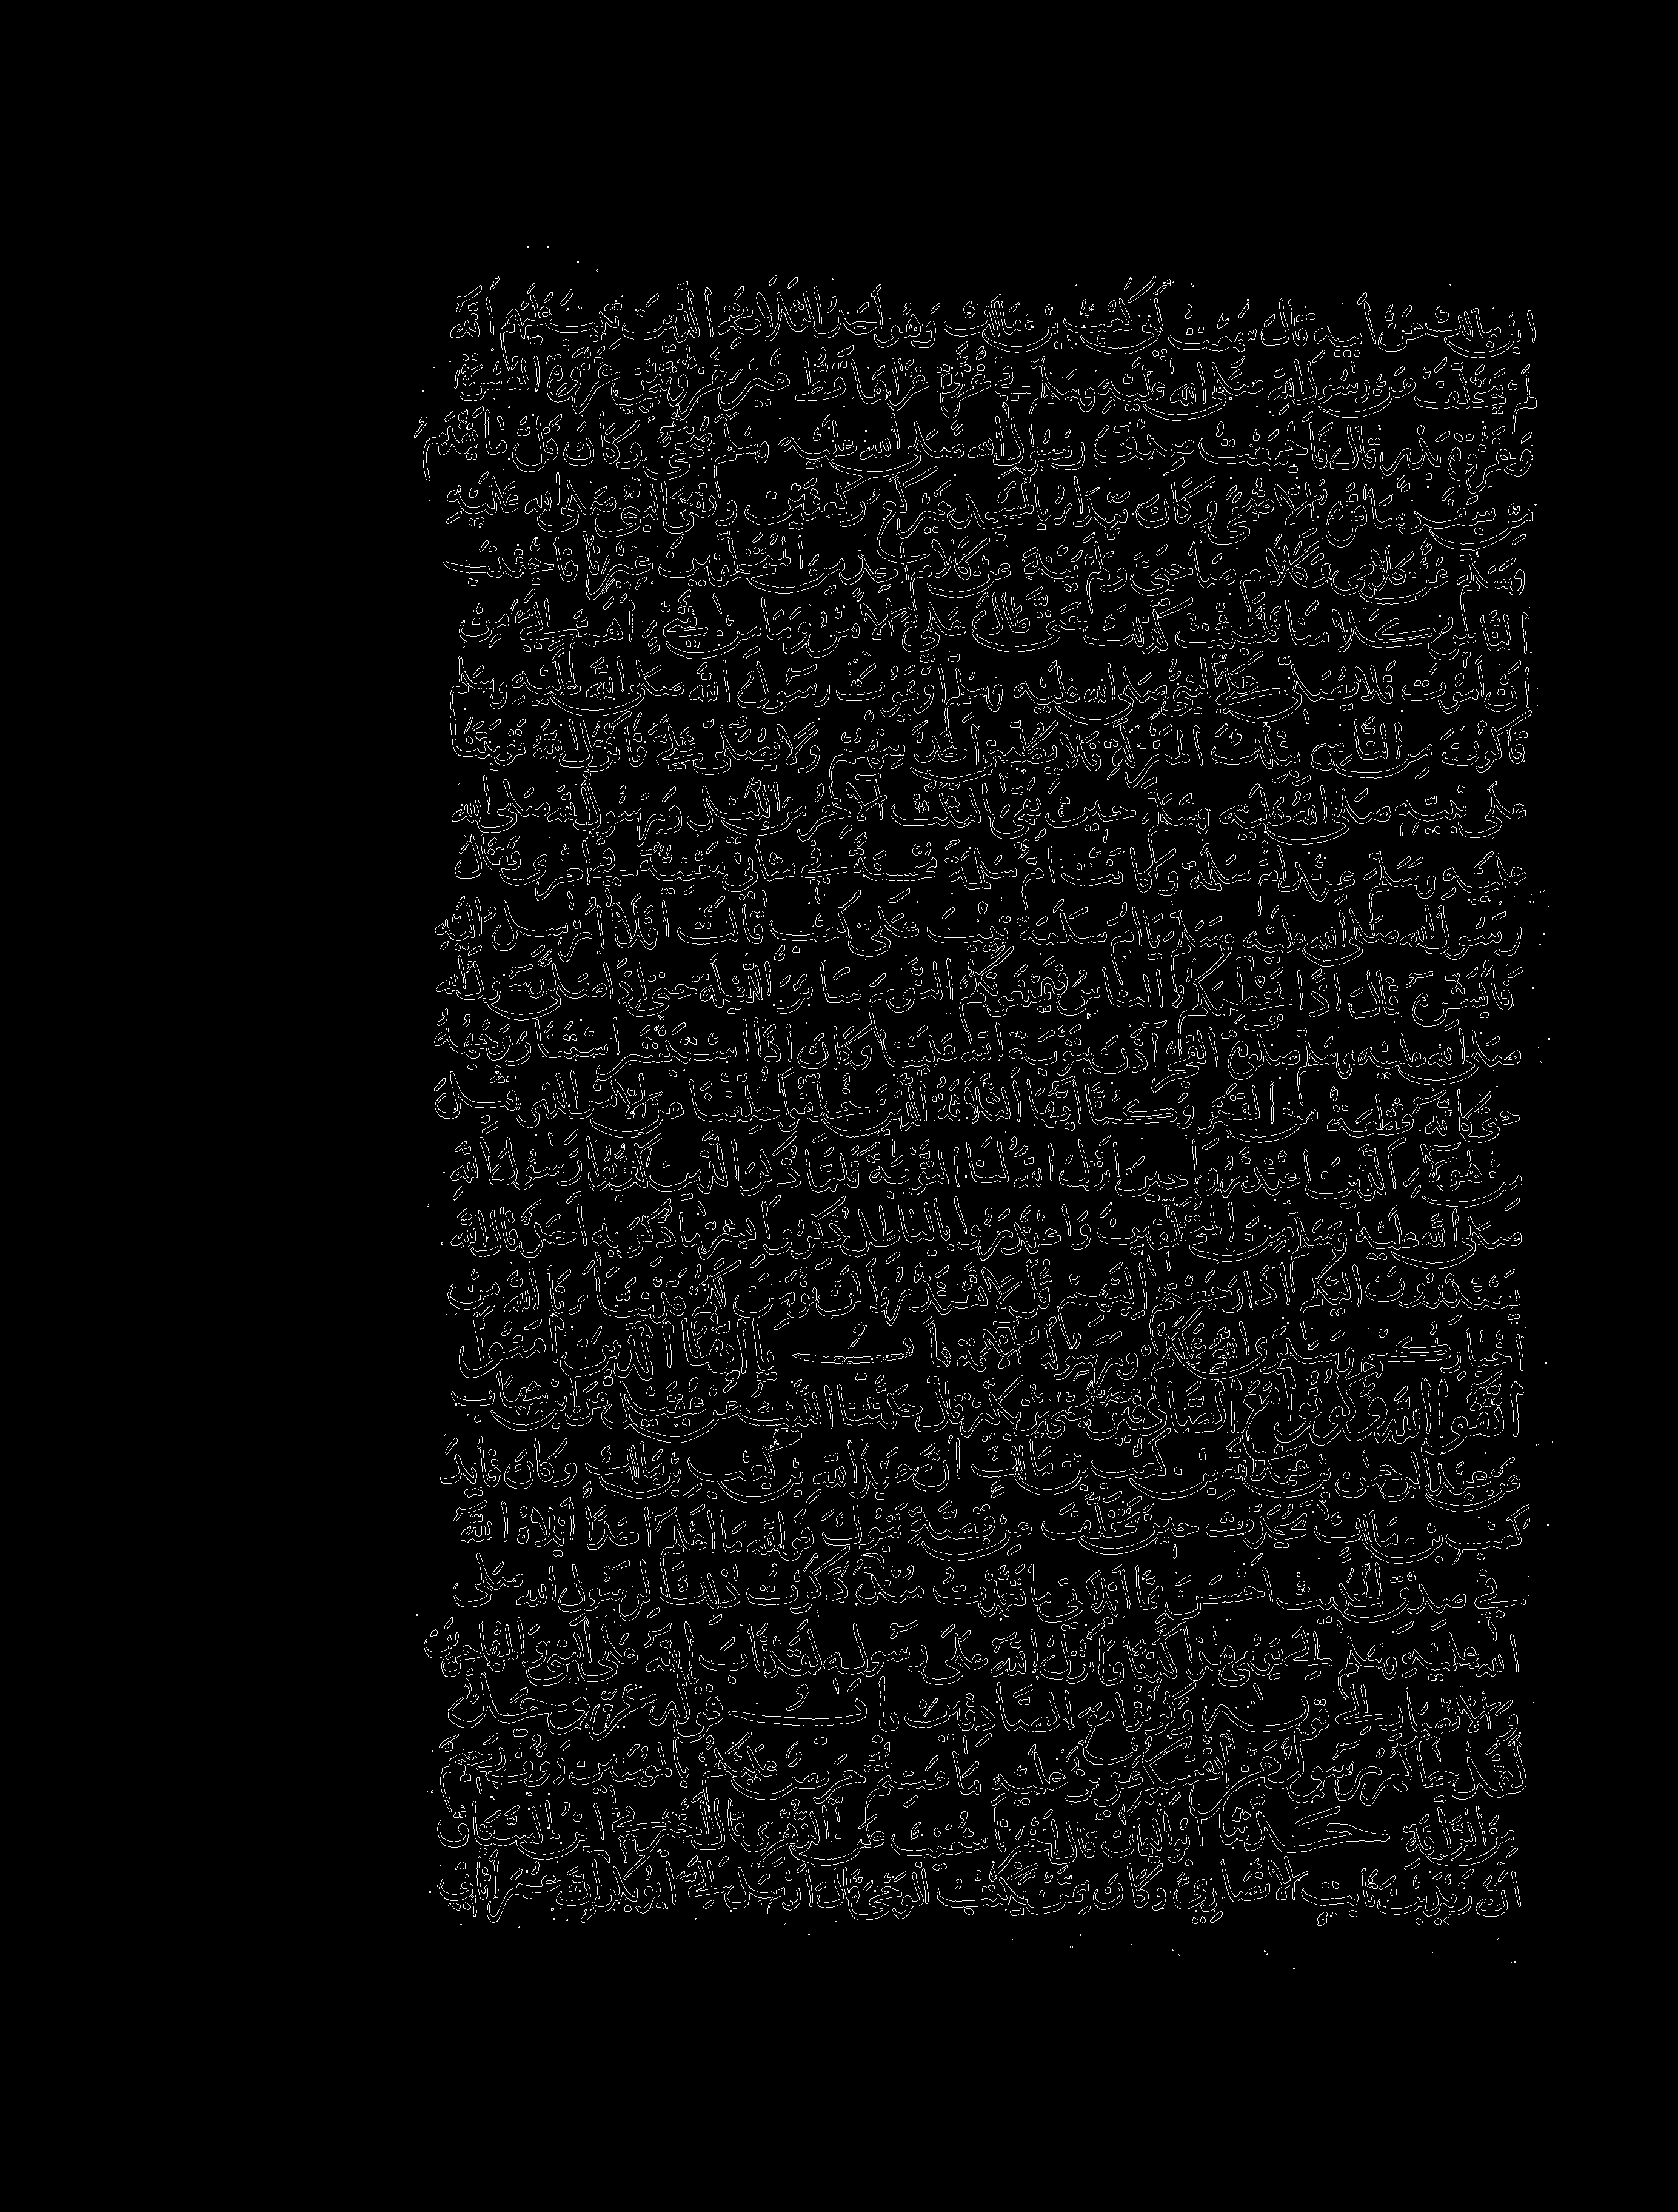 ابن مالك عن أبيه قال سمعت أبي كعب بن مالك وهو أحد الثلاثة الذين تيب عليهم أنه
لم يتخلف عن رسول الله صلى الله عليه وسلم في غزوة غزاها قط غير غزوتين غزوة العسرة
وغزوة بدر قال فأجمعت صدق رسول الله صلى الله عليه وسلم ضحى وكان قل ما يقدم
من سفر سافره إلا ضحى وكان يبدأ بالمسجد فيركع ركعتين ونهى النبي صلى الله عليه
وسلم عن كلامي وكلام صاحبي ولم ينه عن كلام أحد من المتخلفين غيرنا فاجتنب
الناس كلامنا فلبثت كذلك حتى طال علي الأمر وما من شيء أهم إلي من
أن أموت فلا يصلي علي النبي صلى الله عليه وسلم أو يموت رسول الله صلى الله عليه وسلم
فأكون من الناس بتلك المنزلة فلا يكلمني أحد منهم ولا يصلى علي فأنزل الله توبتنا
على نبيه صلى الله عليه وسلم حين بقي الثلث الآخر من الليل ورسول الله صلى الله
عليه وسلم عند أم سلمة وكانت أم سلمة محسنة في شأني معنية في أمري فقال
رسول الله صلى الله عليه وسلم يا أم سلمة تيب على كعب قالت أفلا أرسل إليه
فأبشره قال إذا يحطمكم الناس فيمنعونكم النوم سائر الليلة حتى إذا صلى رسول الله
صلى الله عليه وسلم صلوة الفجر آذن بتوبة الله علينا وكان إذا استبشر استنار وجهه
حتى كأنه قطعة من القمر وكنا أيها الثلاثة الذين خلفوا خلفنا عن الأمر الذي قبل
من هؤلاء الذين اعتذروا حين أنزل الله لنا التوبة فلما ذكر الذين كذبوا رسول الله
صلى الله عليه وسلم من المتخلفين واعتذروا بالباطل ذكروا بشر ما ذكر به أحد قال الله
يعتذرون إليكم إذا رجعتم إليهم قل لا تعتذروا لن نؤمن لكم قد نبأنا الله من
أخباركم وسيرى الله عملكم ورسوله الآية باب يا أيها الذين آمنوا
اتقوا الله وكونوا مع الصادقين يحيى بن بكير قال حدثنا الليث عن عقيل عن ابن شهاب
عن عبد الرحمن بن عبد الله بن كعب بن مالك أن عبد الله بن كعب بن مالك وكان قايد
كعب بن مالك يحدث حين تخلف عن قصة تبوك فوالله ما أعلم أحدا أبلاه الله
في صدق الحديث أحسن مما أبلاني ما تعمدت منذ ذكرت ذلك لرسول الله صلى
الله عليه وسلم إلى يومي هذا كذبا وأنزل الله على رسوله لقد تاب الله على النبي والمهاجرين
والأنصار إلى قوله وكونوا مع الصادقين باب قوله عز وجل
لقد جاءكم رسول من أنفسكم عزيز عليه ما عنتم حريص عليكم بالمؤمنين رؤوف رحيم
من الرأفة حدثنا أبو اليمان قال أخبرنا شعيب عن الزهري قال أخبرني ابن السباق
أن زيد بن ثابت الأنصاري وكان ممن يكتب الوحي قال أرسل إلي أبو بكر إن عمر أتاني